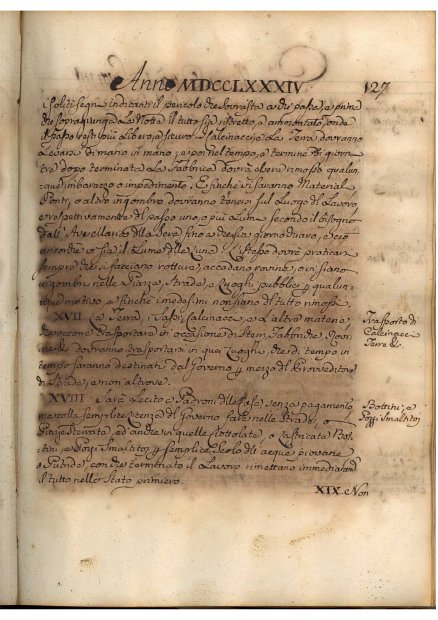 Anno MDCCLXXXIV
127
i soliti segni indicanti il pericolo che sovrasta a chi passa, e prima
che sopraggiunga la Notte il tutto sia ristretto, e ammontato, onde
il passo resti più libero, e sicuro. I Calcinacci, e la Terra dovranno
levarsi di mano in mano, e poi nel tempo, e termine di giorni
tre dopo terminata la Fabbrica dovrà essere rimosso qualun-
que imbarazzo o impedimento. E finché vi saranno Materiali,
Ponti, o altro ingombro dovranno tenersi sul Luogo del Lavoro,
e rispettivamente di passo uno, o più Lumi secondo il bisogno
dall' Ave Maria della sera fino a giorno, e ciò
ancorché vi sia il Lume della Luna. L'istesso dovrà praticarsi
sempre che si facciano rotture, accadano rovine, o vi siano
ingombri nelle Piazze, Strade, e Luoghi pubblici per qualun-
que motivo, e finché i medesimi non siano del tutto rimossi.
XVII La Terra, i Sassi, calcinacci e l'altre materie
trasportarsi in occasione di
dovranno trasportarsi in quei Luoghi, che di tempo in
tempo saranno destinati dal Governo per mezzo del Provveditore
di Strade, e non altrove.
Trasporto di
Calcinacci
Terre &c.
XVIII Sarà Lecito a' Padroni delle Case senza pagamento
ma colla semplice licenza del Governo fare nelle Strade, o
Piazze sterrate, ed anche in quelle ciottolate, o lastricate Bot-
tini, e Pozzi Smaltitoi per semplice scolo di acque piovane
e putride, con che terminato il Lavoro rimettano immediatamte
il tutto nello Stato primiero.
Bottini, e
Pozzi Smaltitoj
XIX. Non